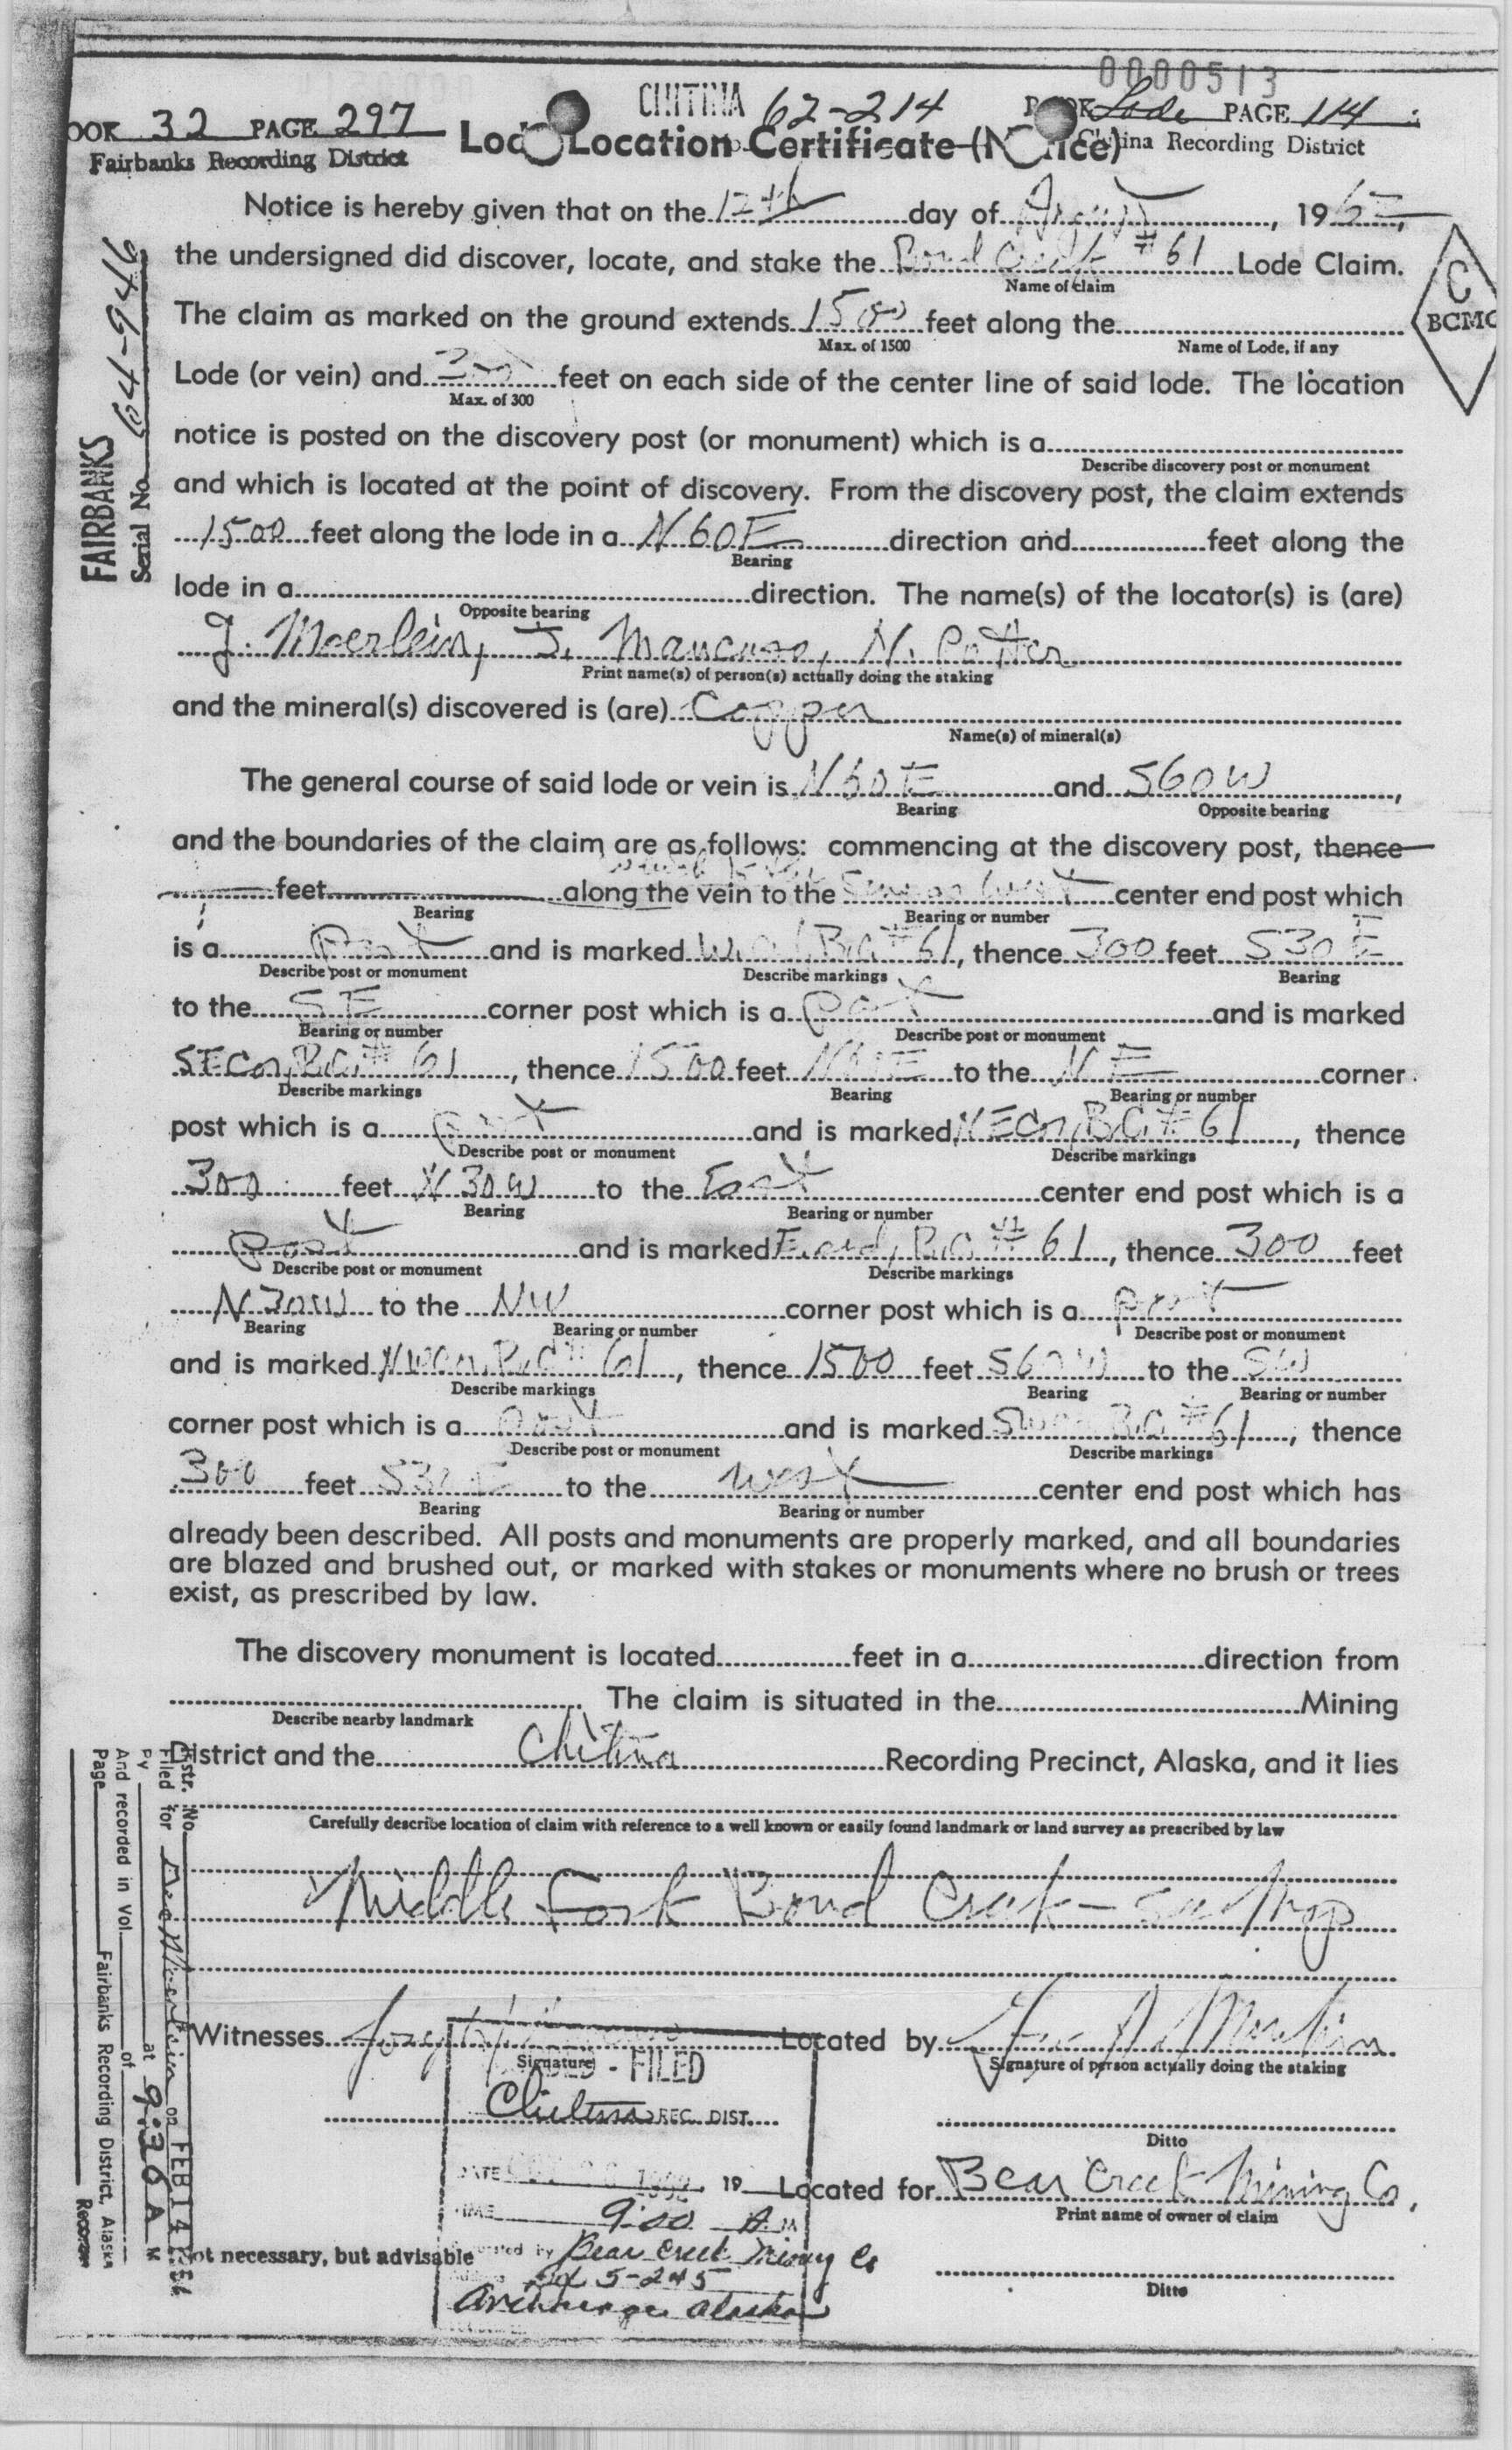 0000513
CHITINA 62-214
BOOK Lode PAGE 114
OOK 32 PAGE 297
Fairbanks Recording District
Lode Location Certificate (Notice)
ina Recording District
Notice is hereby given that on the 12th day of August, 196
the undersigned did discover, locate, and stake the Bond Creek #61 Lode Claim.
Name of claim
The claim as marked on the ground extends 1500 feet along the
Max. of 1500 Name of Lode, if any
C
BCMC
Lode (or vein) and 300 feet on each side of the center line of said lode. The location
Max. of 300
notice is posted on the discovery post (or monument) which is a
Describe discovery post or monument
and which is located at the point of discovery. From the discovery post, the claim extends
1500 feet along the lode in a N60E direction and feet along the
Bearing
lode in a direction. The name(s) of the locator(s) is (are)
Opposite bearing
J. Moerlein, J. Mancuso, N. Potter
Print name(s) of person(s) actually doing the staking
and the mineral(s) discovered is (are) Copper
Name(s) of mineral(s)
The general course of said lode or vein is N60E and S60W,
Bearing Opposite bearing
and the boundaries of the claim are as follows: commencing at the discovery post, thence
feet along the vein to the West center end post which
Bearing Bearing or number
is a Post and is marked W. end, B.C. #61, thence 300 feet S30E
Describe post or monument Describe markings Bearing
to the SE corner post which is a post and is marked
Bearing or number Describe post or monument
SE Cor, B.C. #61, thence 1500 feet N60E to the NE corner
Describe markings Bearing Bearing or number
post which is a post and is marked NE Cor, B.C. #61, thence
Describe post or monument Describe markings
300 feet N30W to the East center end post which is a
Bearing Bearing or number
Post and is marked E. end, B.C. #61, thence 300 feet
Describe post or monument Describe markings
N30W to the NW corner post which is a post
Bearing Bearing or number Describe post or monument
and is marked NW Cor, B.C. #61, thence 1500 feet S60W to the SW
Describe markings Bearing Bearing or number
corner post which is a post and is marked SW Cor B.C. #61, thence
Describe post or monument Describe markings
300 feet S30E to the West center end post which has
Bearing Bearing or number
already been described. All posts and monuments are properly marked, and all boundaries
are blazed and brushed out, or marked with stakes or monuments where no brush or trees
exist, as prescribed by law.
The discovery monument is located feet in a direction from
The claim is situated in the Mining
Describe nearby landmark
District and the Chitina Recording Precinct, Alaska, and it lies
Carefully describe location of claim with reference to a well known or easily found landmark or land survey as prescribed by law
Middle Fork Bond Creek - see Map
Witnesses Located by
Signature Signature of person actually doing the staking
FILED
Chitina REC. DIST.
Ditto
DATE 19 Located for Bear Creek Mining Co.
Print name of owner of claim
TIME 9:00 A M
Not necessary, but advisable
by Bear Creek Mining Co
5-245
Ditto
Anchorage Alaska
FAIRBANKS
Serial No. 64-9446
Instr. No.
Filed for on FEB 14
By at 9:30 A M
And recorded in Vol. of
Page Fairbanks Recording District, Alaska
Recorder